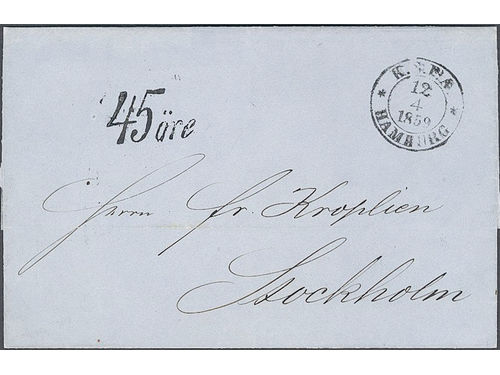 K.S.P.A
12
4
1859
HAMBURG
45 öre
Herrn Fr. Kroplien
Stockholm